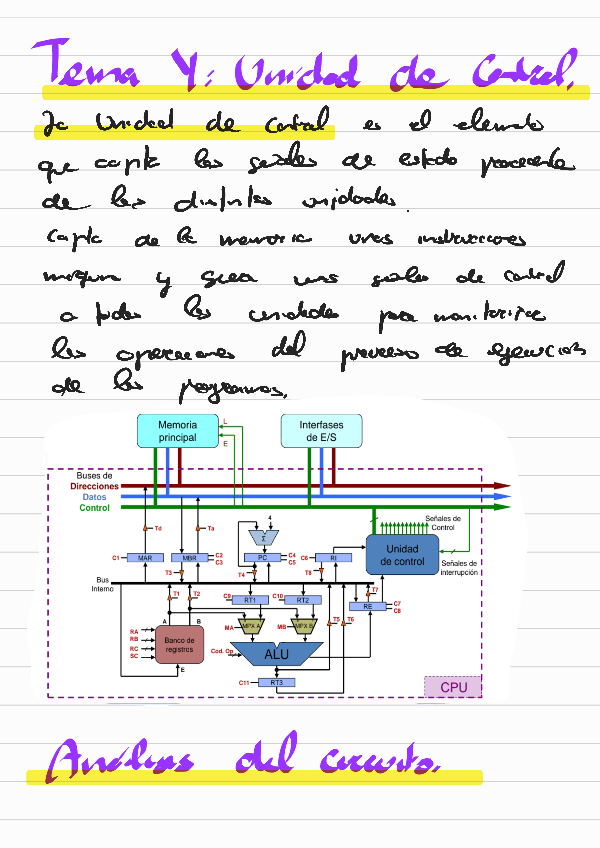 Tema Y: Unidad de Control.
La Unidad de Control es el elemento
que capta las señales de estado procedente
de las distintas unidades.
Capta de la memoria unas instrucciones
maquina y genera unas señales de control
a todas las unidades para monitorizar
las operaciones del proceso de ejecución
de los programas.
Memoria principal
L
E
Interfases de E/S
Buses de
Direcciones
Datos
Control
Td
Ta
4
Σ
Señales de Control
Unidad de control
Señales de interrupción
C1
MAR
MBR
C2
C3
PC
C4
C5
C6
RI
T3
T4
T8
Bus Interno
T1
T2
C9
RT1
C10
RT2
T7
RE
C7
C8
A
B
MA
MPX A
MB
MPX B
T5
T6
RA
RB
RC
SC
Banco de registros
E
Cod. Op
ALU
C11
RT3
CPU
Análisis del circuito.